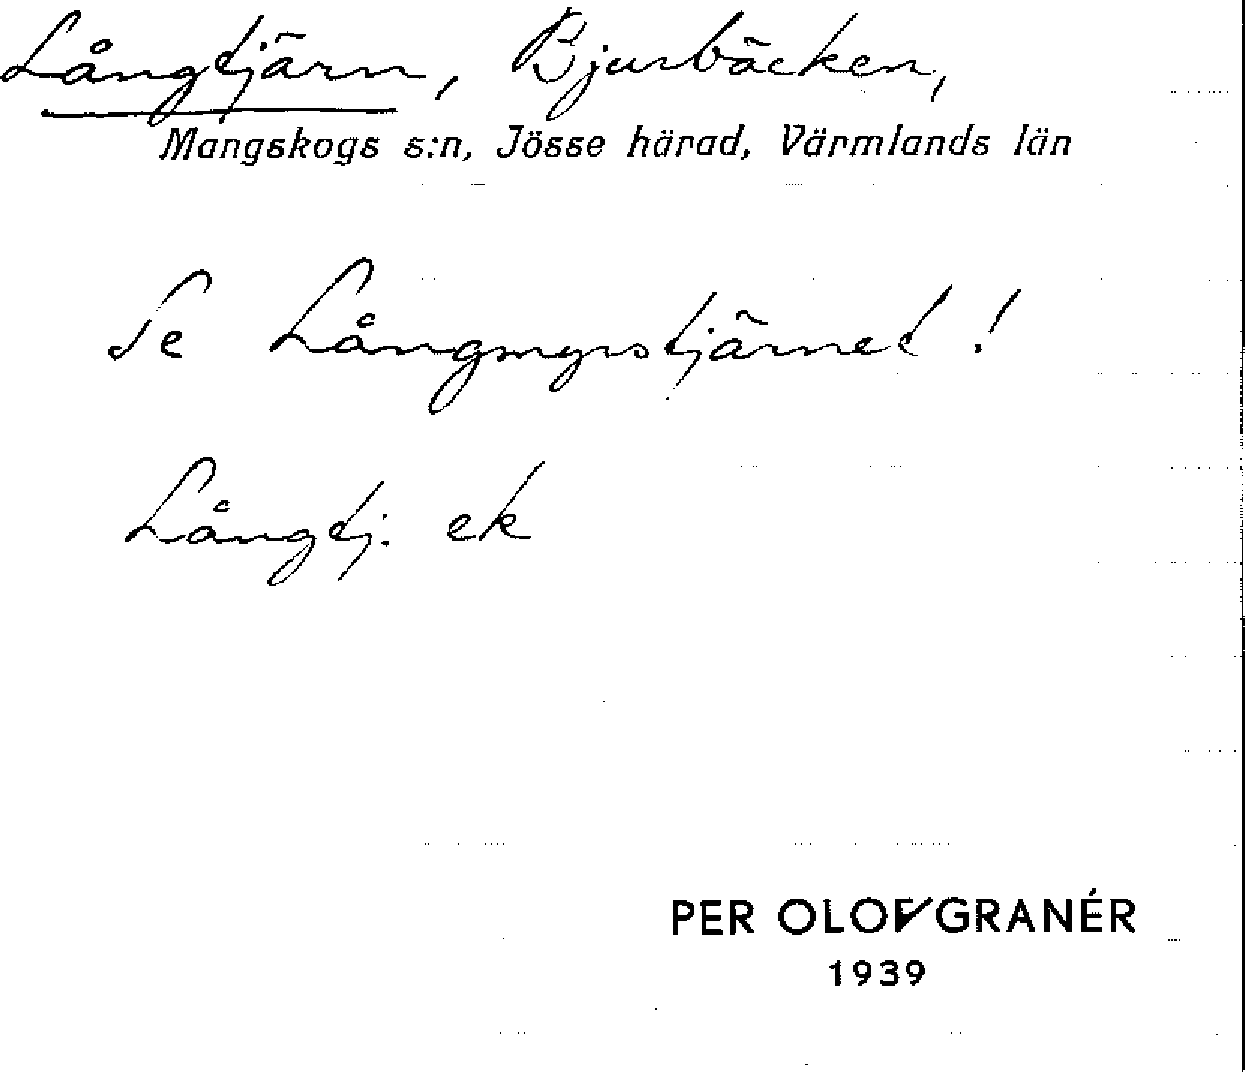 Långtjärn, Bjurbäcken,
Mangskogs s:n, Jösse härad, Värmlands län
Se Långmyrstjärnet!
Långtj. ek
PER OLOF GRANÉR
1939